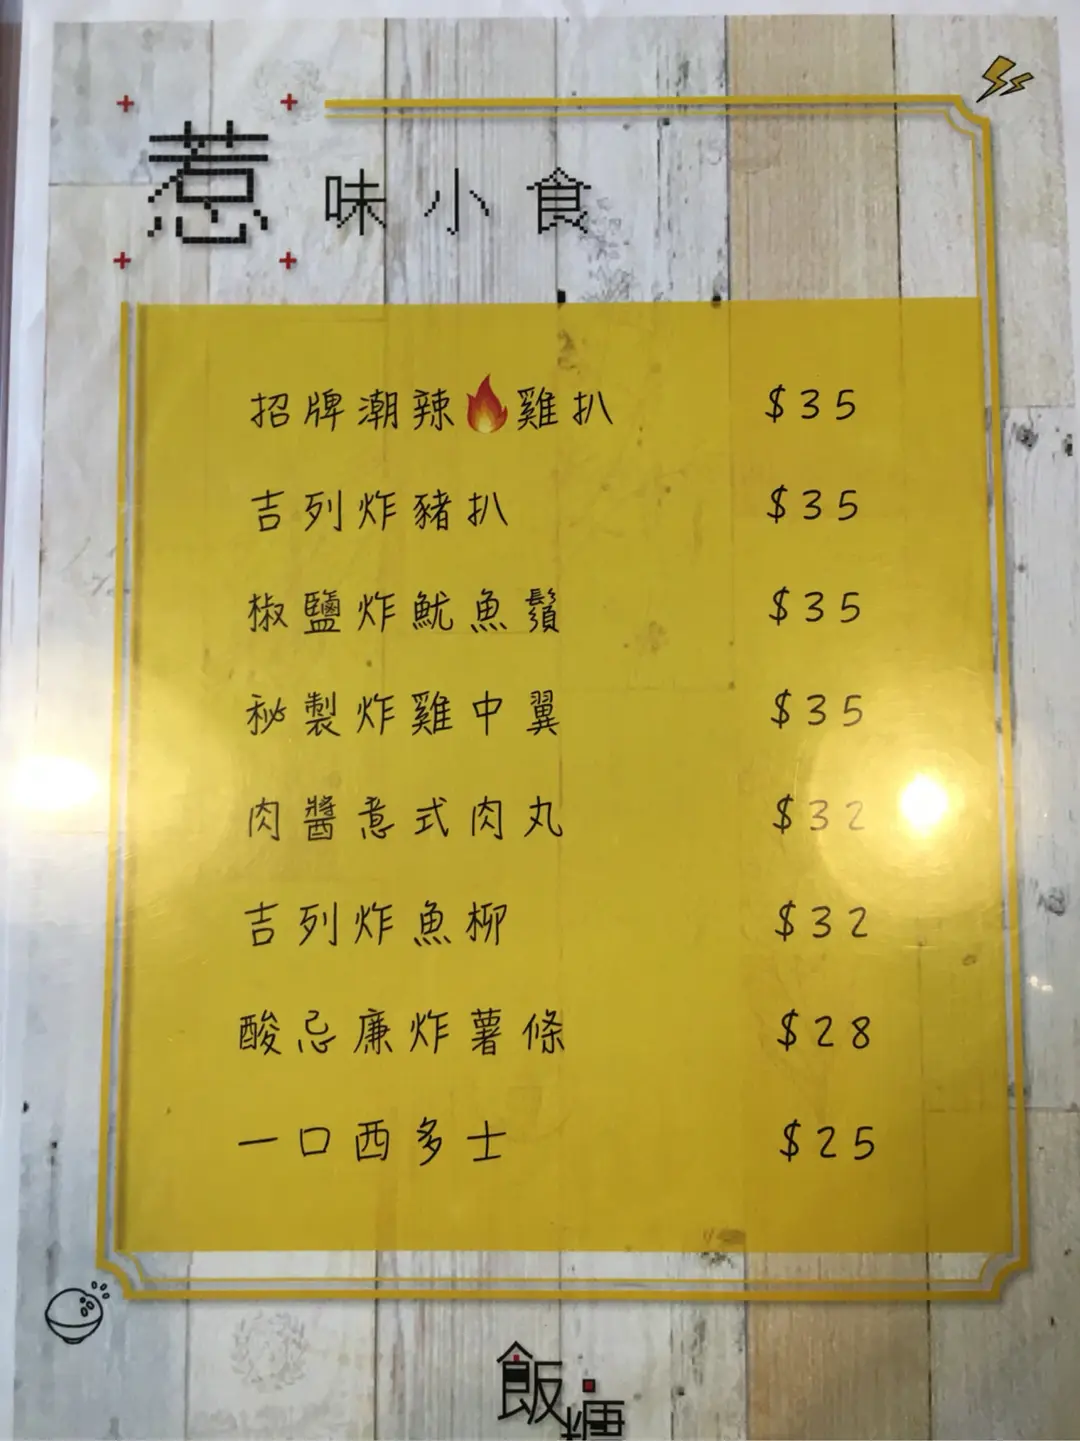 惹味小食
招牌潮辣🔥雞扒 $35
吉列炸豬扒 $35
椒鹽炸魷魚鬚 $35
秘製炸雞中翼 $35
肉醬意式肉丸 $32
吉列炸魚柳 $32
酸忌廉炸薯條 $28
一口西多士 $25
飯糰